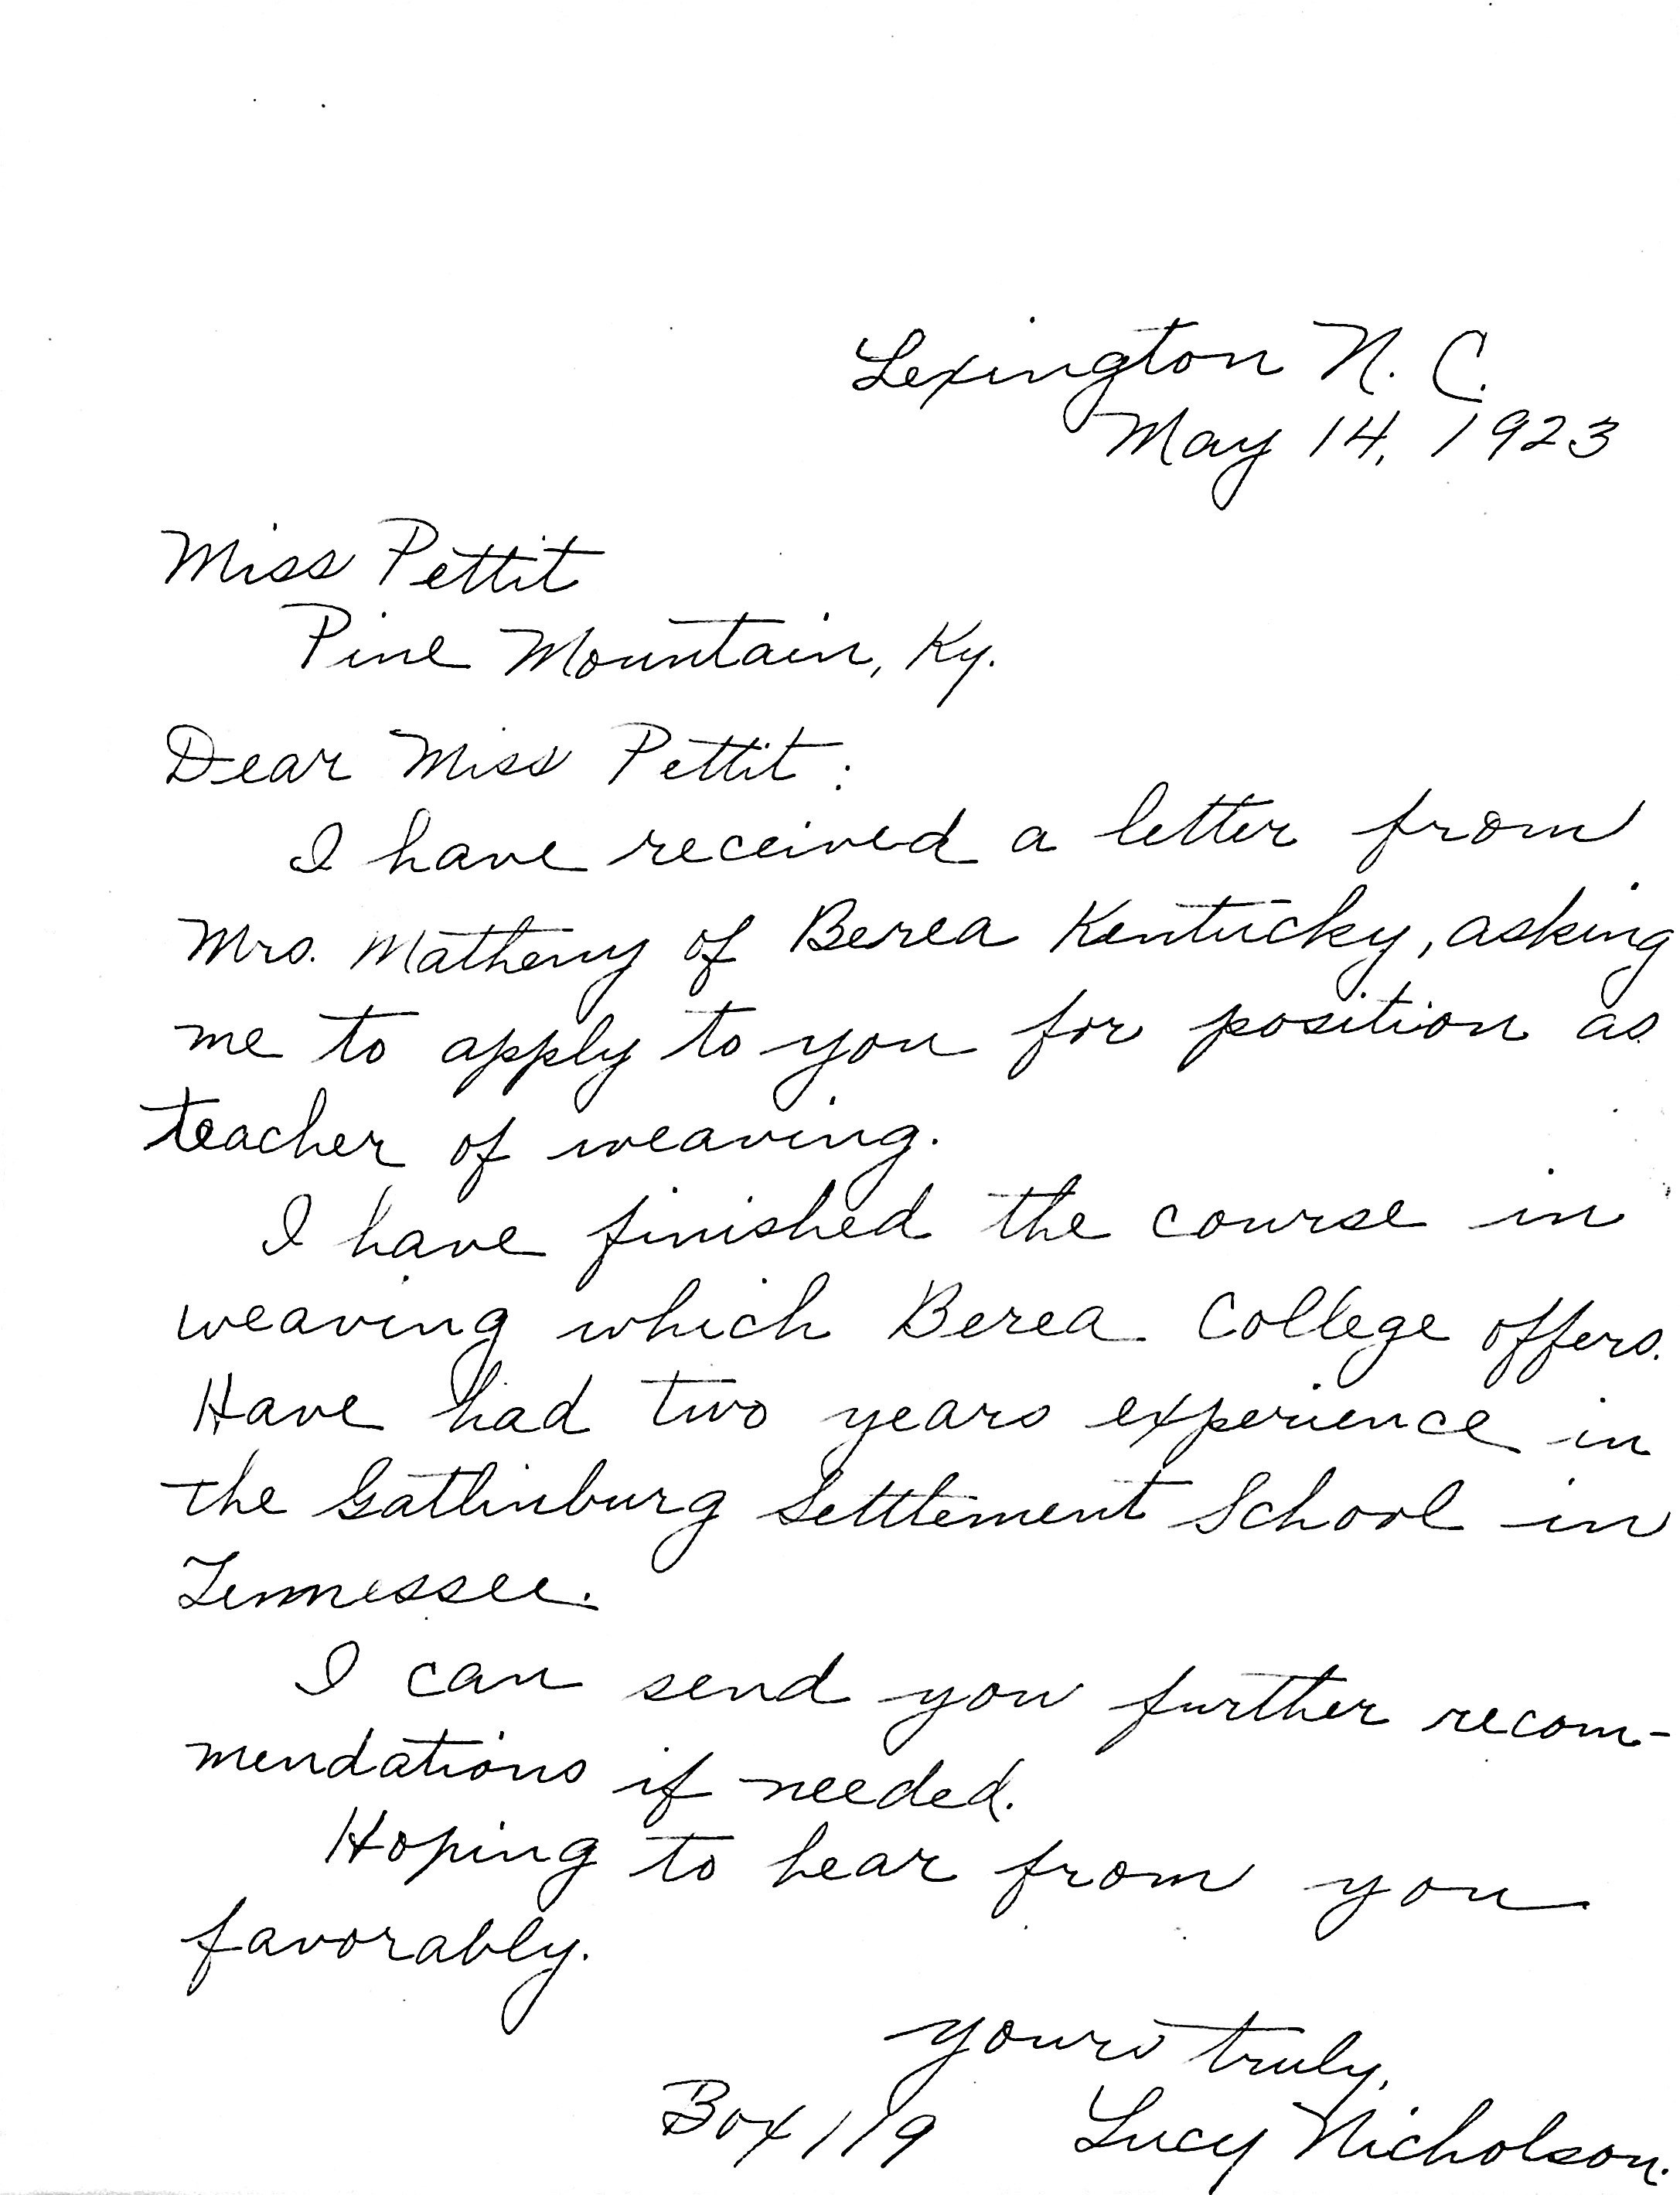 Lexington N. C.
May 14, 1923
Miss Pettit
Pine Mountain, Ky.
Dear Miss Pettit:
I have received a letter from
Mrs. Matheny of Berea Kentucky, asking
me to apply to you for position as
teacher of weaving.
I have finished the course in
weaving which Berea College offers.
Have had two years experience in
the Gatlinburg Settlement School in
Tennessee.
I can send you further recom-
mendations if needed.
Hoping to hear from you
favorably.
Yours truly,
Box 119 Lucy Nicholson.